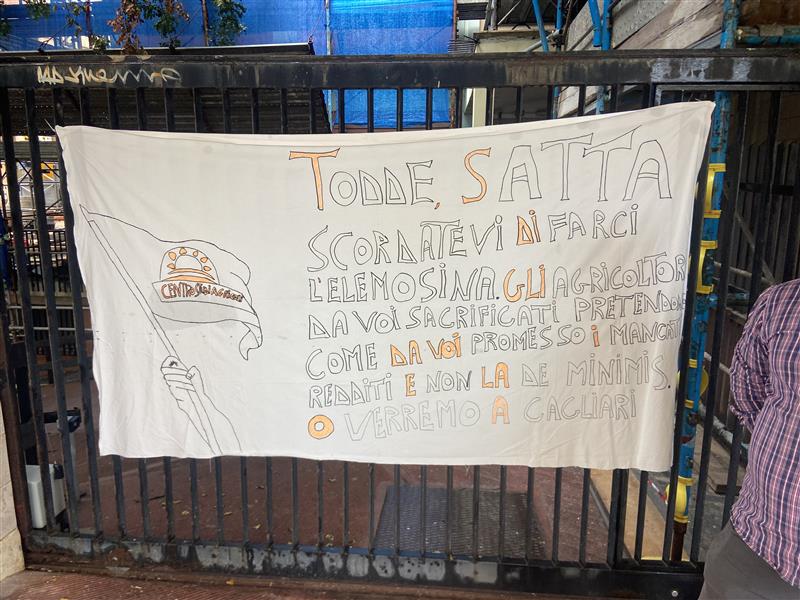 TODDE, SATTA
SCORDATEVI DI FARCI
L'ELEMOSINA. GLI AGRICOLTORI
DA VOI SACRIFICATI PRETENDONO
COME DA VOI PROMESSO i MANCATI
REDDITI E NON LA DE MINIMIS.
O VERREMO A CAGLIARI